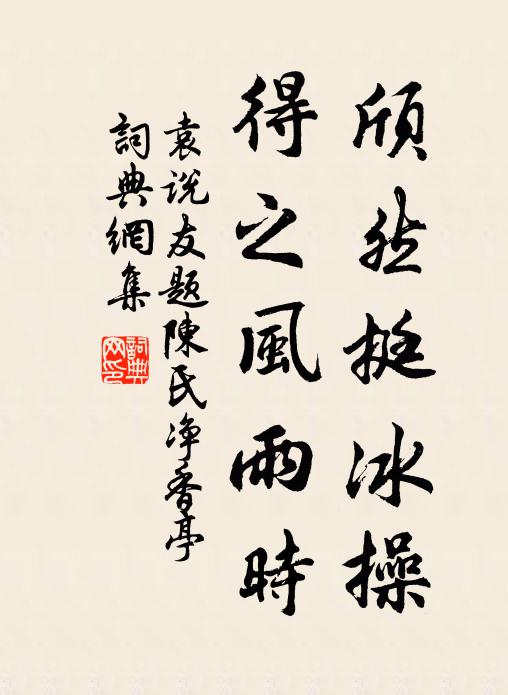 頎然挺冰操
得之風雨時
袁说友题陳氏净香亭
詞典網集
詞典
网印